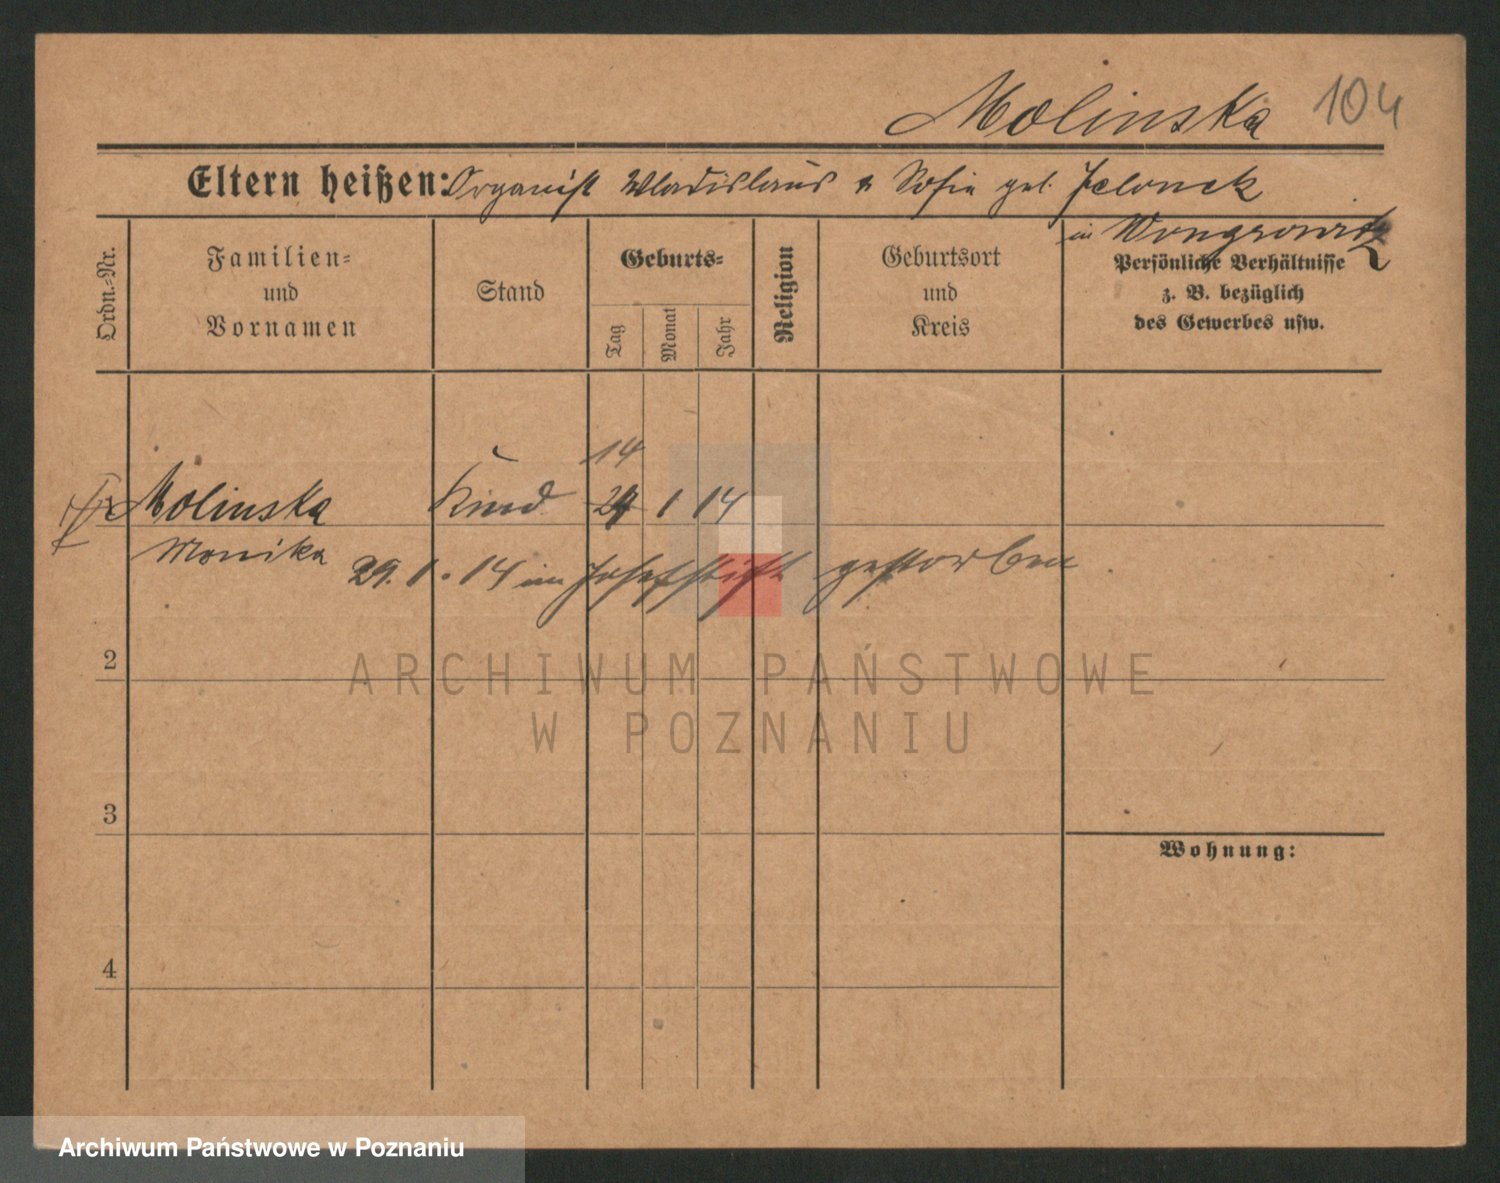 Molinska 104
Eltern heißen: Organist Wladislaus & Sofie geb. Jelonek
in Wongrowitz
Ordn.-Nr.
Familien- und Vornamen
Stand
Geburts-
Tag
Monat
Jahr
Religion
Geburtsort und Kreis
Persönliche Verhältnisse
z. B. bezüglich
des Gewerbes usw.
14
Molinska Kind 24 1 14
Monika
29. 1. 14 im Josefstift gestorben
2
3
4
Wohnung:
ARCHIWUM PAŃSTWOWE
W POZNANIU
Archiwum Państwowe w Poznaniu